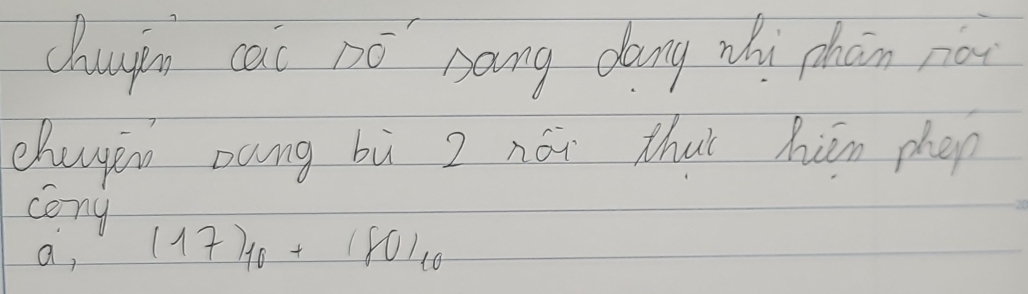 chuyển các số sang dạng nhị phân rồi
chuyển sang bù 2 rồi thực hiện phép
cộng
a, (17)10 + (80)10